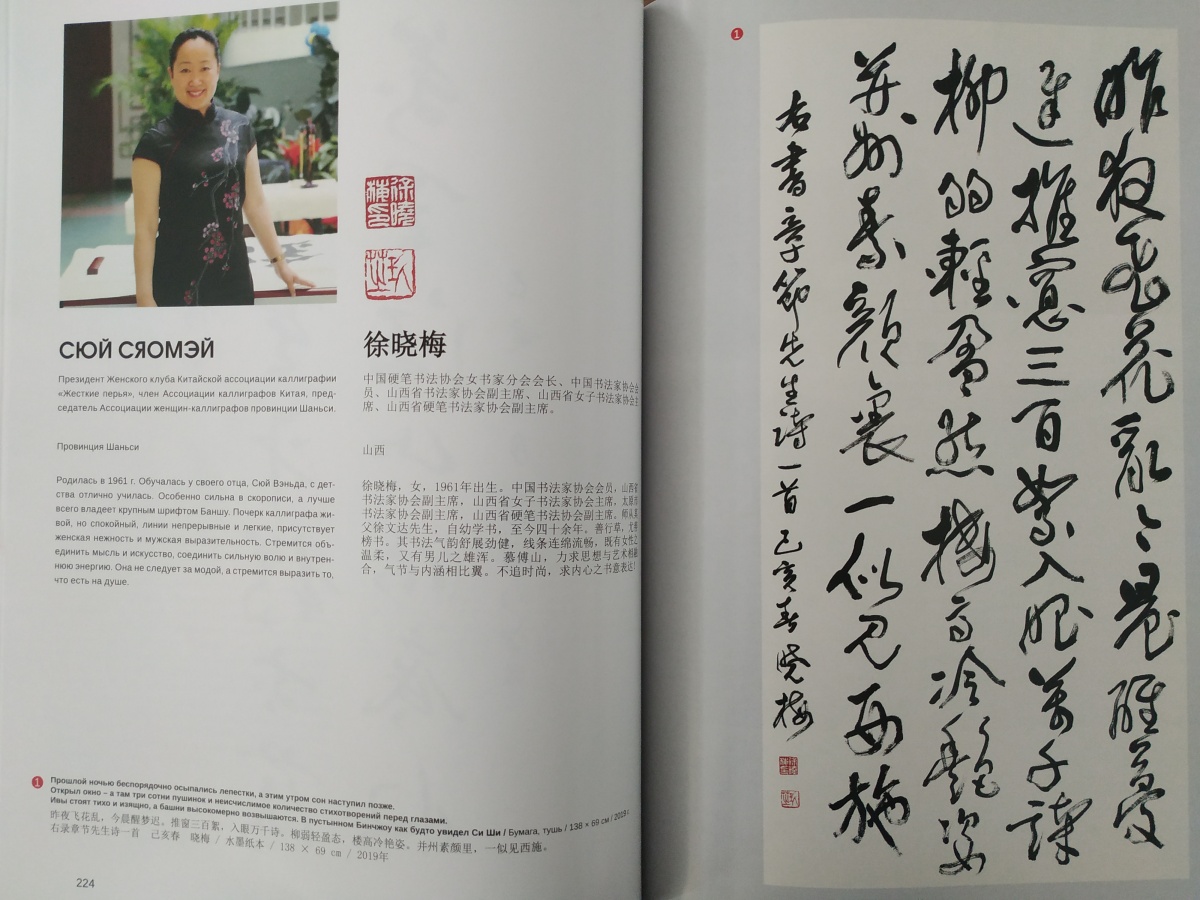 徐晓梅印
СЮЙ СЯОМЭЙ
Президент Женского клуба Китайской ассоциации каллиграфии
«Жесткие перья», член Ассоциации каллиграфов Китая, пред-
седатель Ассоциации женщин-каллиграфов провинции Шаньси.
Провинция Шаньси
Родилась в 1961 г. Обучалась у своего отца, Сюй Вэньда, с дет-
ства отлично училась. Особенно сильна в скорописи, а лучше
всего владеет крупным шрифтом Баншу. Почерк каллиграфа жи-
вой, но спокойный, линии непрерывные и легкие, присутствует
женская нежность и мужская выразительность. Стремится объ-
единить мысль и искусство, соединить сильную волю и внутрен-
нюю энергию. Она не следует за модой, а стремится выразить то,
что есть на душе.
徐晓梅
中国硬笔书法协会女书家分会会长、中国书法家协会会
员、山西省书法家协会副主席、山西省女子书法家协会主
席、山西省硬笔书法家协会副主席。
山西
徐晓梅，女，1961年出生。中国书法家协会会员，山西省
书法家协会副主席，山西省女子书法家协会主席，太原市
书法家协会副主席，山西省硬笔书法家协会副主席。师从其
父徐文达先生，自幼学书，至今四十余年。善行草，尤擅
榜书。其书法气韵舒展劲健，线条连绵流畅，既有女性之
温柔，又有男儿之雄浑。慕傅山，力求思想与艺术相融
合，气节与内涵相比翼。不追时尚，求内心之书意表达！
1
Прошлой ночью беспорядочно осыпались лепестки, а этим утром сон наступил позже.
Открыл окно – а там три сотни пушинок и неисчислимое количество стихотворений перед глазами.
Ивы стоят тихо и изящно, а башни высокомерно возвышаются. В пустынном Бинчжоу как будто увидел Си Ши / Бумага, тушь / 138 × 69 см / 2019 г
昨夜飞花乱，今晨醒梦迟。推窗三百絮，入眼万千诗。柳弱轻盈态，楼高冷艳姿。并州素颜里，一似见西施。
右录章节先生诗一首 己亥春 晓梅 / 水墨纸本 / 138 × 69 cm / 2019年
224
1
昨夜飛花亂今晨醒夢
遲推窗三百絮入眼萬千詩
柳弱輕盈態樓高冷艷姿
并州素顏裏一似見西施
右書章節先生詩一首己亥春曉梅